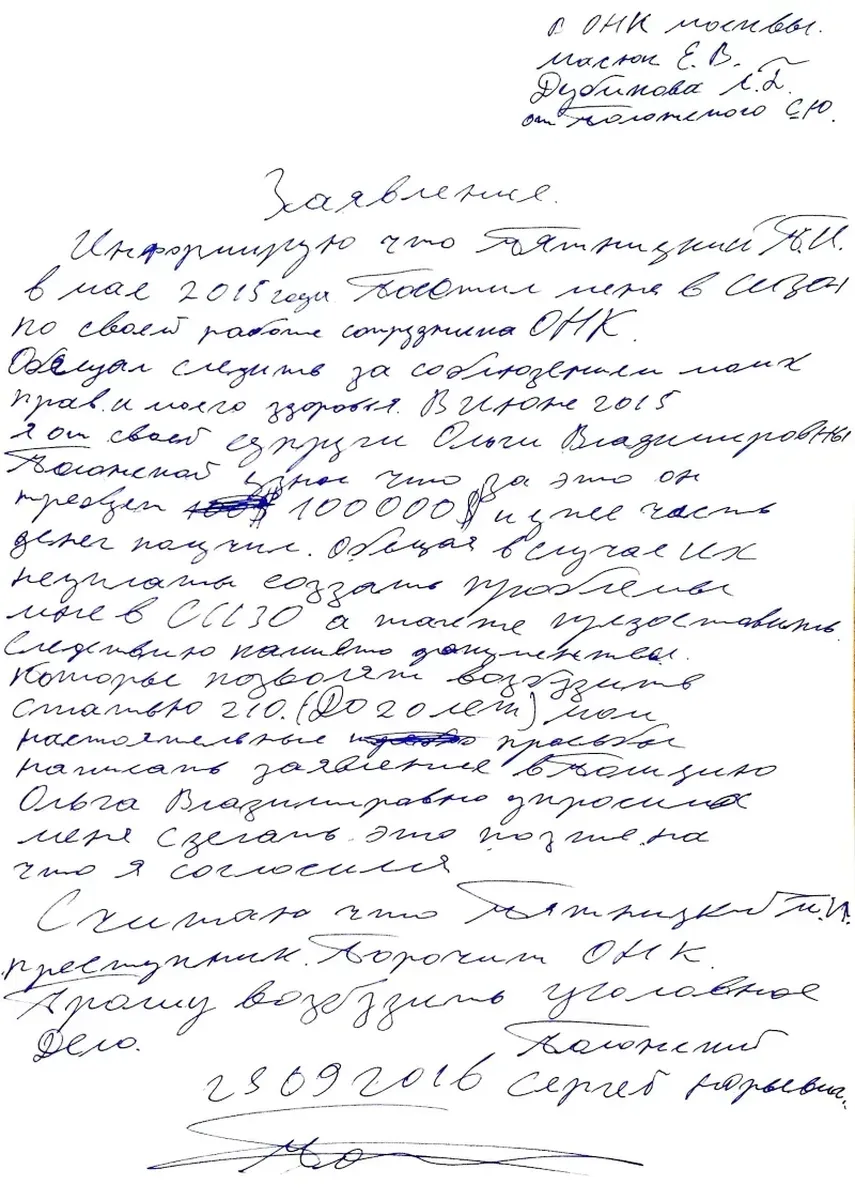 В ОНК Москвы.
Масюк Е. В.
Дубикова Л. Б.
от Полонского С.Ю.
Заявление.
Информирую что Пятницкий П.И.
в мае 2015 года Посетил меня в СИЗО
по своей работе сотрудника ОНК.
Обещал следить за соблюдением моих
прав. и моего здоровья. В июне 2015
я от своей супруги Ольги Владимировны
Полонской узнал что за это он
требует 100000$ и уже часть
денег получил. Обещая в случае их
неуплаты создать проблемы
мне в СИЗО а также предоставить
следствию документы.
Которые позволят возбудить
статью 210. (До 20 лет) мои
настоятельные просьбы
написать заявление в Полицию
Ольга Владимировна упросила
меня сделать это позже. на
что я согласился
Считаю что Пятницкий П.И.
преступник. Порочит ОНК.
Прошу возбудить уголовное
Дело. Полонский
29 09 2016 Сергей Юрьевич.